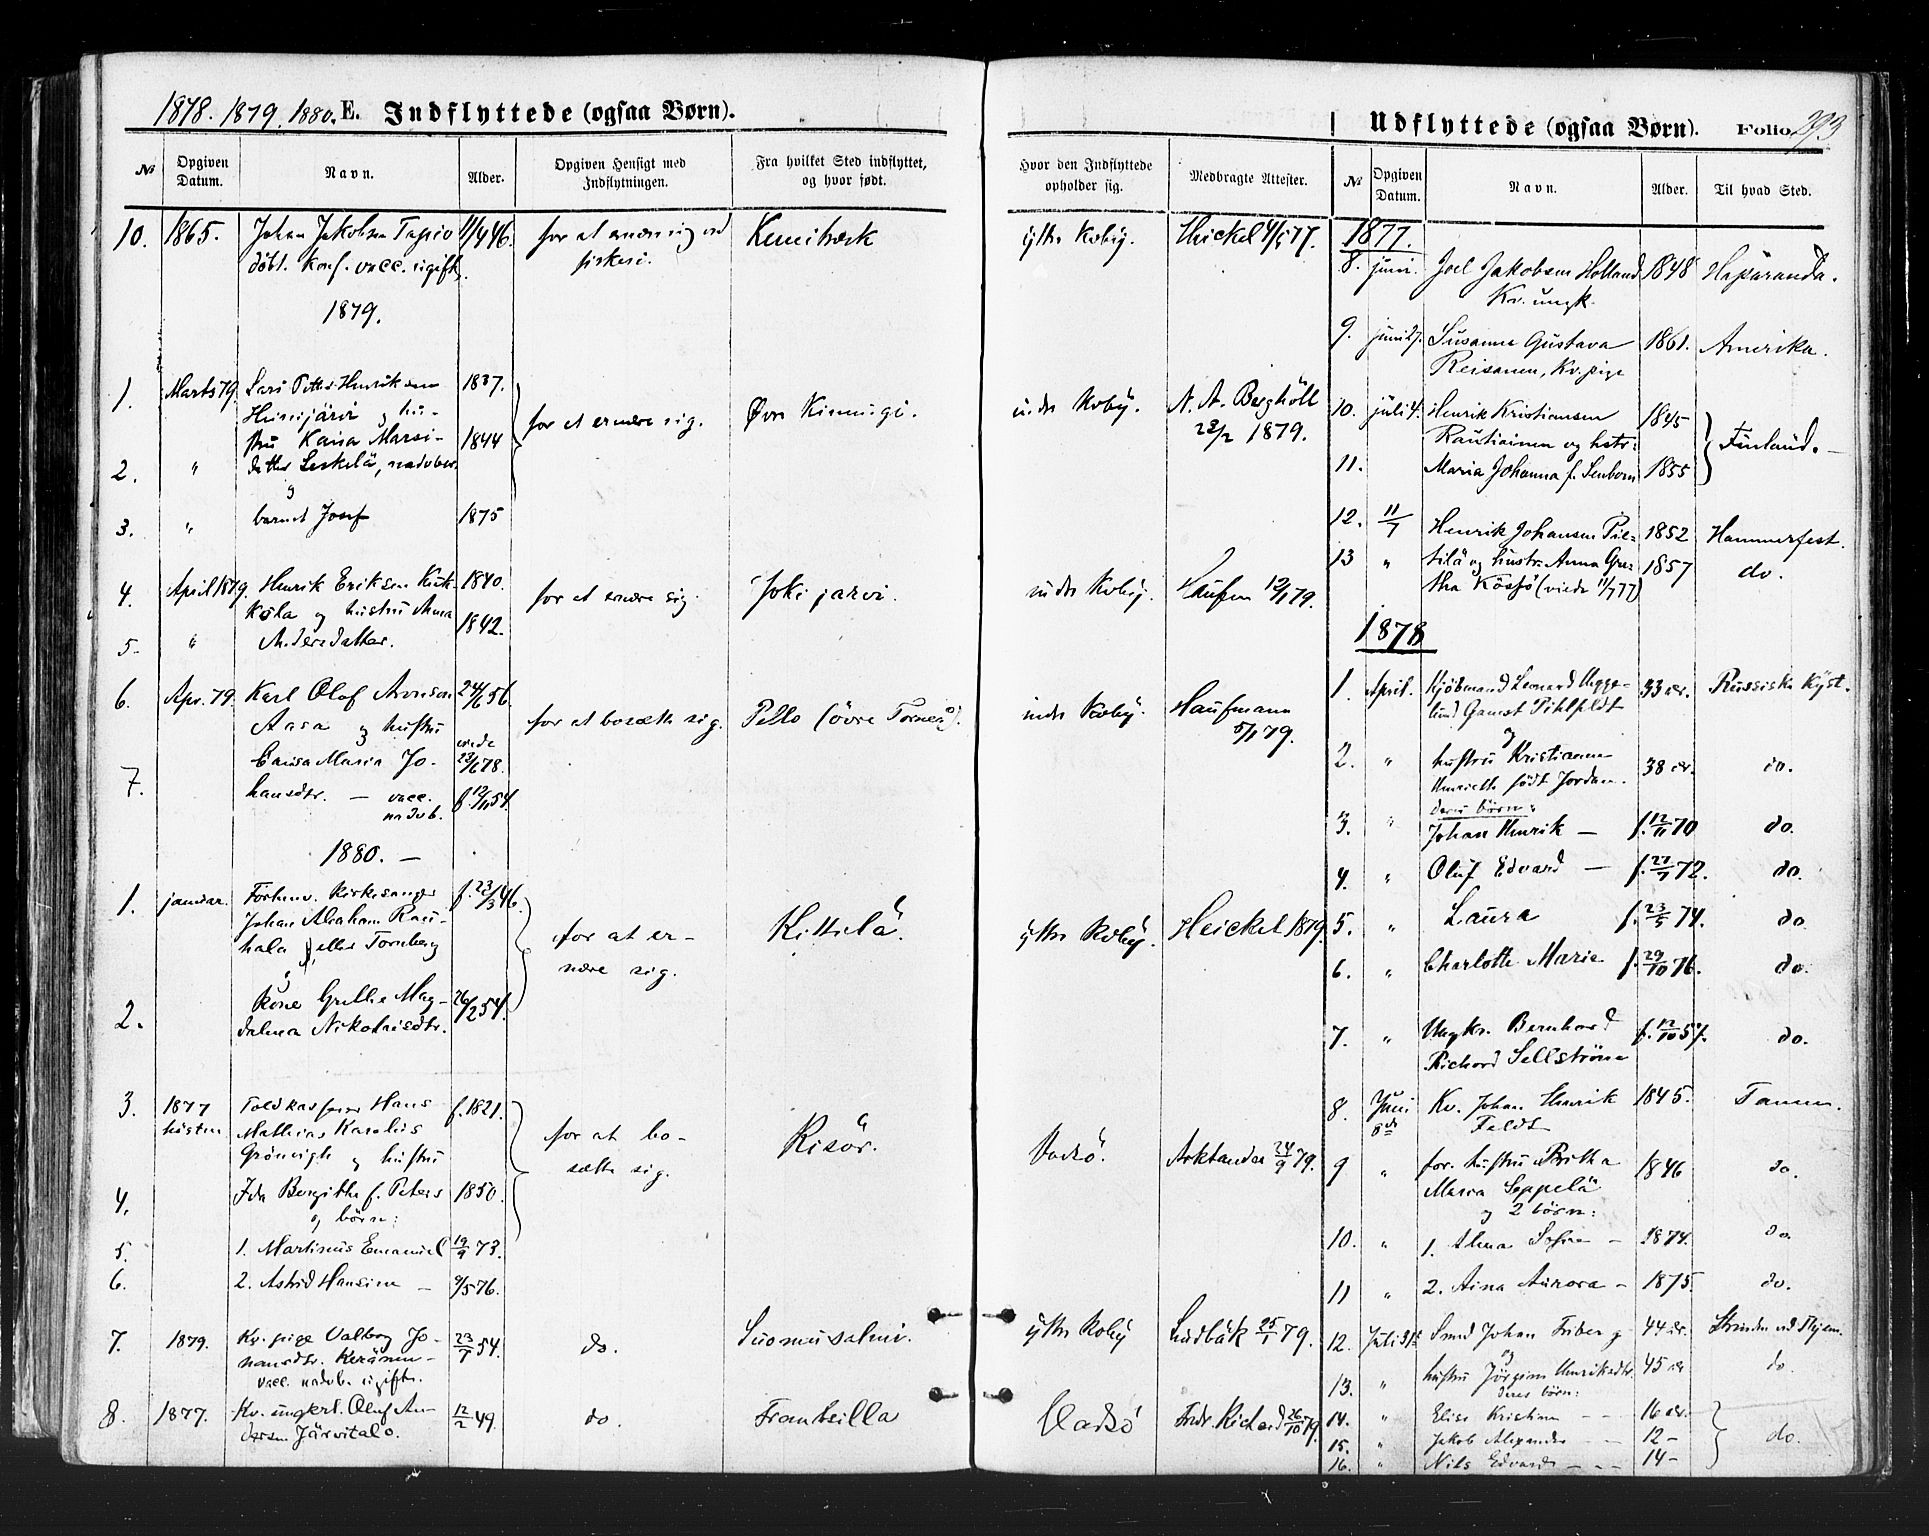 1878. 1879. 1880. E. Indflyttede (ogsaa Børn).
№ Opgiven Datum. Navn. Alder. Opgiven Hensigt med Indflytningen. Fra hvilket Sted indflyttet, og hvor født.
10. 1865. Johan Jakobsen Tapio 11/4 46. for at ernære sig ved Kemiträsk
døbt. konf. vacc. ugift. fiskeri.
1879.
1. Marts 79. Lars Petter Henriksen 1837.
Heinijärvi og hu-
stru Kaisa Marsi- 1844 for at ernære sig. Øvre Kimingi.
2. " datter Leskelä, nadvber.
og
3. " barnet Josef 1875
4. April 1879. Henrik Eriksen Kuk- 1840. for at ernære sig. Jokijarvi.
kola og hustru Anna 1842.
5. " Andersdatter.
6. Apr. 79. Karl Olof Aronson 24/6 56.
Aasa og hustru for at bosætte sig. Pello (övre Torneå).
Caisa Maria Jo- viede 23/6 78.
7. hansdtr. — vacc. f. 12/11 54.
nadvb.
1880. —
1. januar. Forhenv. Kirkesanger f. 23/3 46.
Johan Abraham Rau-
hala eller Tornberg for at er- Kittilä.
og nære sig.
2. kone Grethe Mag- 26/2 54.
dalena Nikolaisdtr.
3. 1877 høsten Toldkasserer Hans f. 1821.
Mathias Karelius
Grönvigh og hustru for at bo- Risör.
4. Ida Bergithe f. Peters 1850. sætte sig.
og börn:
5. 1. Martinus Emanuel 19/9 73.
6. 2. Astrid Hansine — 9/5 76.
7. 1879. Kv. pige Valborg Jo- 23/7 54. do. Suomusalmi.
hansdtr. Keränen —
vacc. nadvb. ugift.
8. 1877. Kv. ungkrl. Oluf An- 12/2 49. do. Frantsilla
dersen Järvitalo.
Udflyttede (ogsaa Børn). Folio 293
Hvor den Indflyttede opholder sig. Medbragte Attester. № Opgiven Datum. Navn. Alder. Til hvad Sted.
ytre Kvby. Heickel 4/5 77. 1877.
8. juni. Joel Jakobsen Holland 1848 Haparanda.
Kv. ungk.
9. juni 27. Susanna Gustava 1861. Amerika.
Reisanen, Kv. pige
indre Kvby. N. A. Berghöll 28/2 1879. 10. juli 4. Henrik Kristiansen 1845
Rautiainen og hstr: Finland. —
11. Maria Johanna f. Lenborn 1855
12. 11/7 Henrik Johansen Pie- 1852 Hammerfest.
indre Kvby. Haufm 12/1 79. 13 " tilä og hustr. Anna Gre- 1857 do.
tha Kössö (viede 11/7 77)
1878
1. April. Kjöbmand Leonard Ugge- 33 år. Russiske kyst.
indre Kvby. Haufmann 5/1 79. lund Gamst Pihlfeldt
og
2. " hustru Kristianne 38 år. do.
Henriette født Jordan.
deres börn:
3. " Johan Henrik — f. 12/11 70 do.
4. " Oluf Edvard — f. 27/7 72. do.
ytre Kvby. Heickel 1879. 5. " Laura f. 23/5 74. do
6. " Charlotte Marie f. 29/10 76. do.
7. " Ungkr. Bernhard f. 12/10 57. do.
Richard Sellström
8. Juni 8de Kv. Johan Henrik 1845. Tanen.
Feldt
Vadsö. Arktander 24/9 79. 9 " for. hustru Britha 1846 do.
Maria Seppelä
og 2 börn:
10. " 1. Alma Sofie — 1874. do.
11 " 2. Aina Aurora — 1875. do.
ytre Kvby Lindbäk 25/1 79. 12. Juli 31te Smed Johan Friberg 44 år.
og
13. " hustru Jörgine Henriksdtr. 45 år do.
deres børn:
Vadsö Fredr. Richard 26/10 79. 14. " Elise Kristine — — 16 år.
15. " Jakob Alexander — — 12 — do.
16. " Nils Edvard — — — 14 —